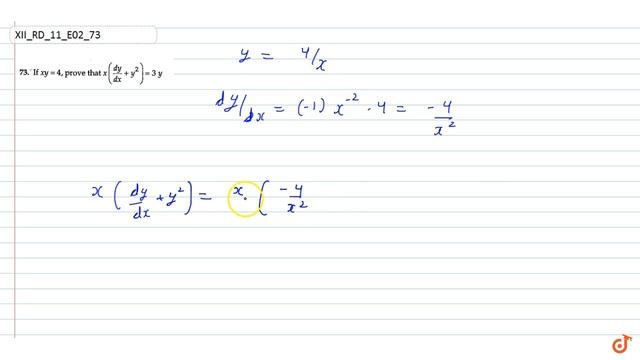 XII_RD_11_E02_73
y = 4/x
73. If xy = 4, prove that x(dy/dx + y²) = 3 y
dy/dx = (-1) x⁻² · 4 = -4/x²
x (dy/dx + y²) = x · ( -4/x²